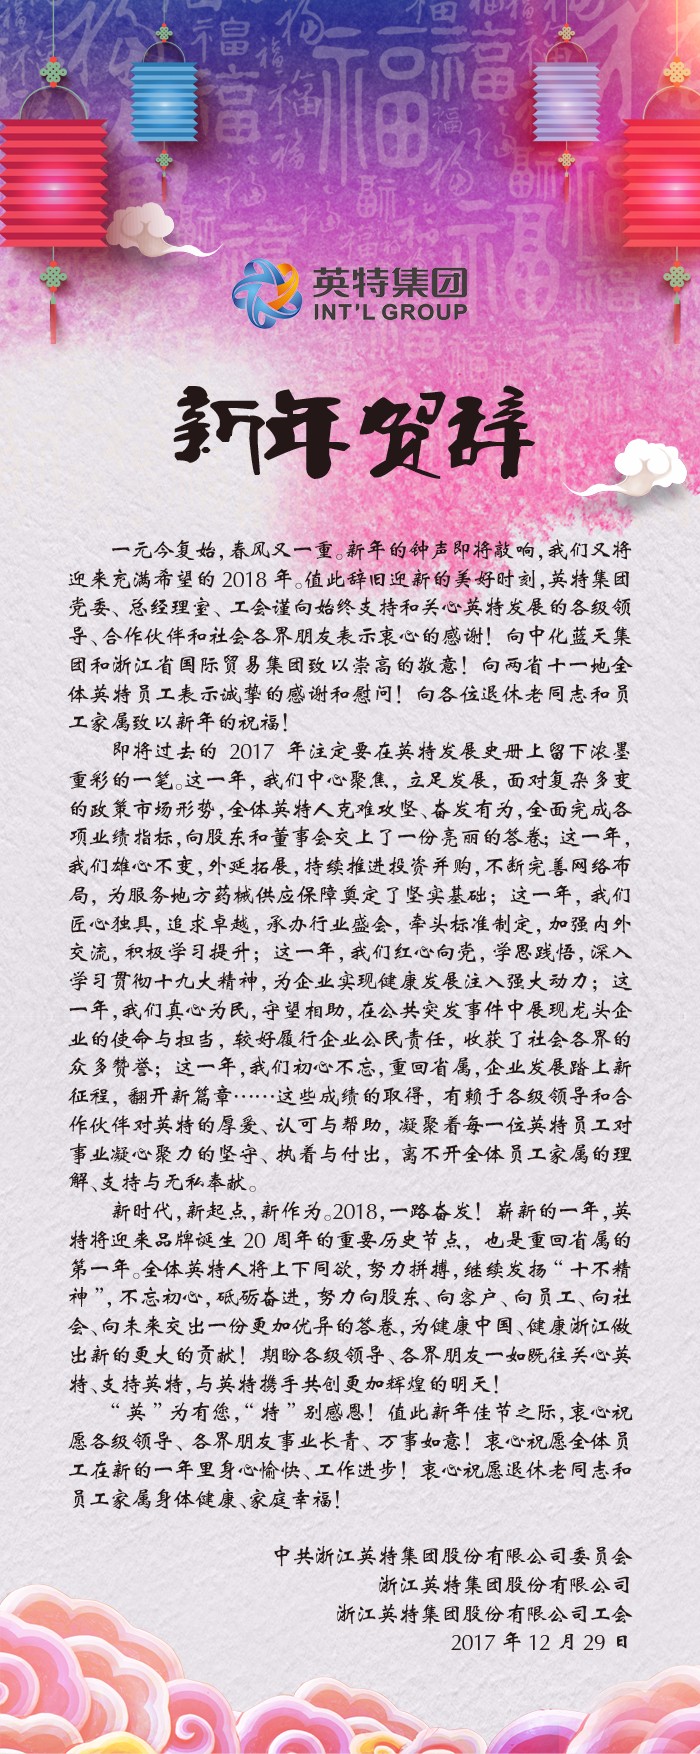 英特集团
INT'L GROUP
新年贺辞
一元今复始,春风又一重。新年的钟声即将敲响,我们又将
迎来充满希望的 2018 年。值此辞旧迎新的美好时刻,英特集团
党委、总经理室、工会谨向始终支持和关心英特发展的各级领
导、合作伙伴和社会各界朋友表示衷心的感谢! 向中化蓝天集
团和浙江省国际贸易集团致以崇高的敬意! 向两省十一地全
体英特员工表示诚挚的感谢和慰问! 向各位退休老同志和员
工家属致以新年的祝福!
即将过去的 2017 年注定要在英特发展史册上留下浓墨
重彩的一笔。这一年,我们中心聚焦,立足发展,面对复杂多变
的政策市场形势,全体英特人克难攻坚、奋发有为,全面完成各
项业绩指标,向股东和董事会交上了一份亮丽的答卷; 这一年,
我们雄心不变,外延拓展,持续推进投资并购,不断完善网络布
局,为服务地方药械供应保障奠定了坚实基础; 这一年,我们
匠心独具,追求卓越,承办行业盛会,牵头标准制定,加强内外
交流,积极学习提升; 这一年,我们红心向党,学思践悟,深入
学习贯彻十九大精神,为企业实现健康发展注入强大动力; 这
一年,我们真心为民,守望相助,在公共突发事件中展现龙头企
业的使命与担当,较好履行企业公民责任,收获了社会各界的
众多赞誉; 这一年,我们初心不忘,重回省属,企业发展踏上新
征程,翻开新篇章……这些成绩的取得,有赖于各级领导和合
作伙伴对英特的厚爱、认可与帮助,凝聚着每一位英特员工对
事业凝心聚力的坚守、执着与付出,离不开全体员工家属的理
解、支持与无私奉献。
新时代,新起点,新作为。2018,一路奋发! 崭新的一年,英
特将迎来品牌诞生 20 周年的重要历史节点,也是重回省属的
第一年。全体英特人将上下同欲,努力拼搏,继续发扬“十不精
神”,不忘初心,砥砺奋进,努力向股东、向客户、向员工、向社
会、向未来交出一份更加优异的答卷,为健康中国、健康浙江做
出新的更大的贡献! 期盼各级领导、各界朋友一如既往关心英
特、支持英特,与英特携手共创更加辉煌的明天!
“英”为有您,“特”别感恩! 值此新年佳节之际,衷心祝
愿各级领导、各界朋友事业长青、万事如意! 衷心祝愿全体员
工在新的一年里身心愉快、工作进步! 衷心祝愿退休老同志和
员工家属身体健康、家庭幸福!
中共浙江英特集团股份有限公司委员会
浙江英特集团股份有限公司
浙江英特集团股份有限公司工会
2017 年 12 月 29 日